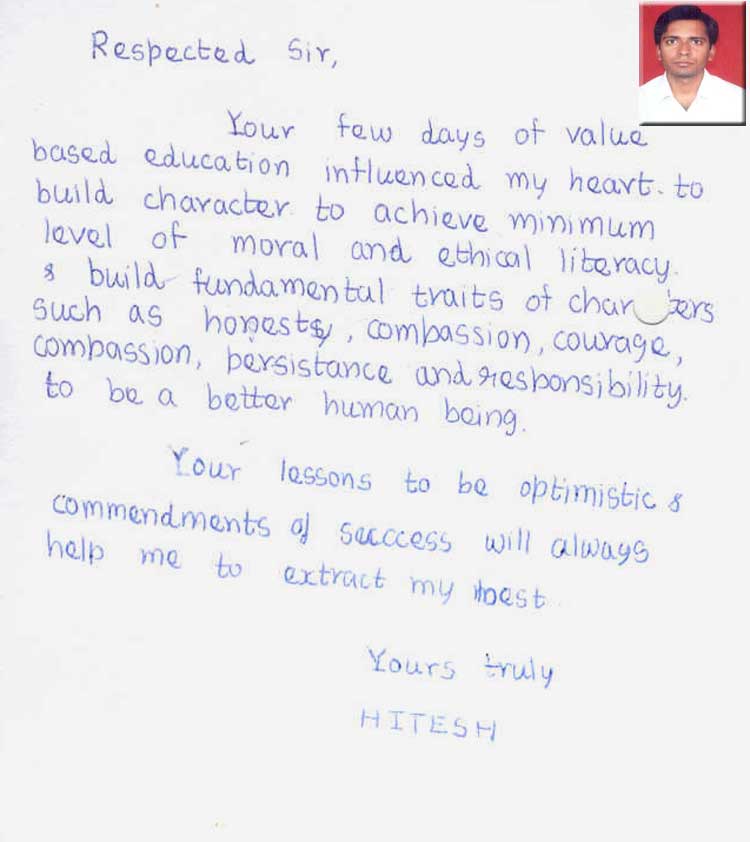 Respected Sir,
Your few days of value
based education influenced my heart. to
build character to achieve minimum
level of moral and ethical literacy.
& build fundamental traits of char ters
such as honesty, combassion, courage,
combassion, persistance and responsibility.
to be a better human being.
Your lessons to be optimistic &
commendments of success will always
help me to extract my best
Yours truly
HITESH